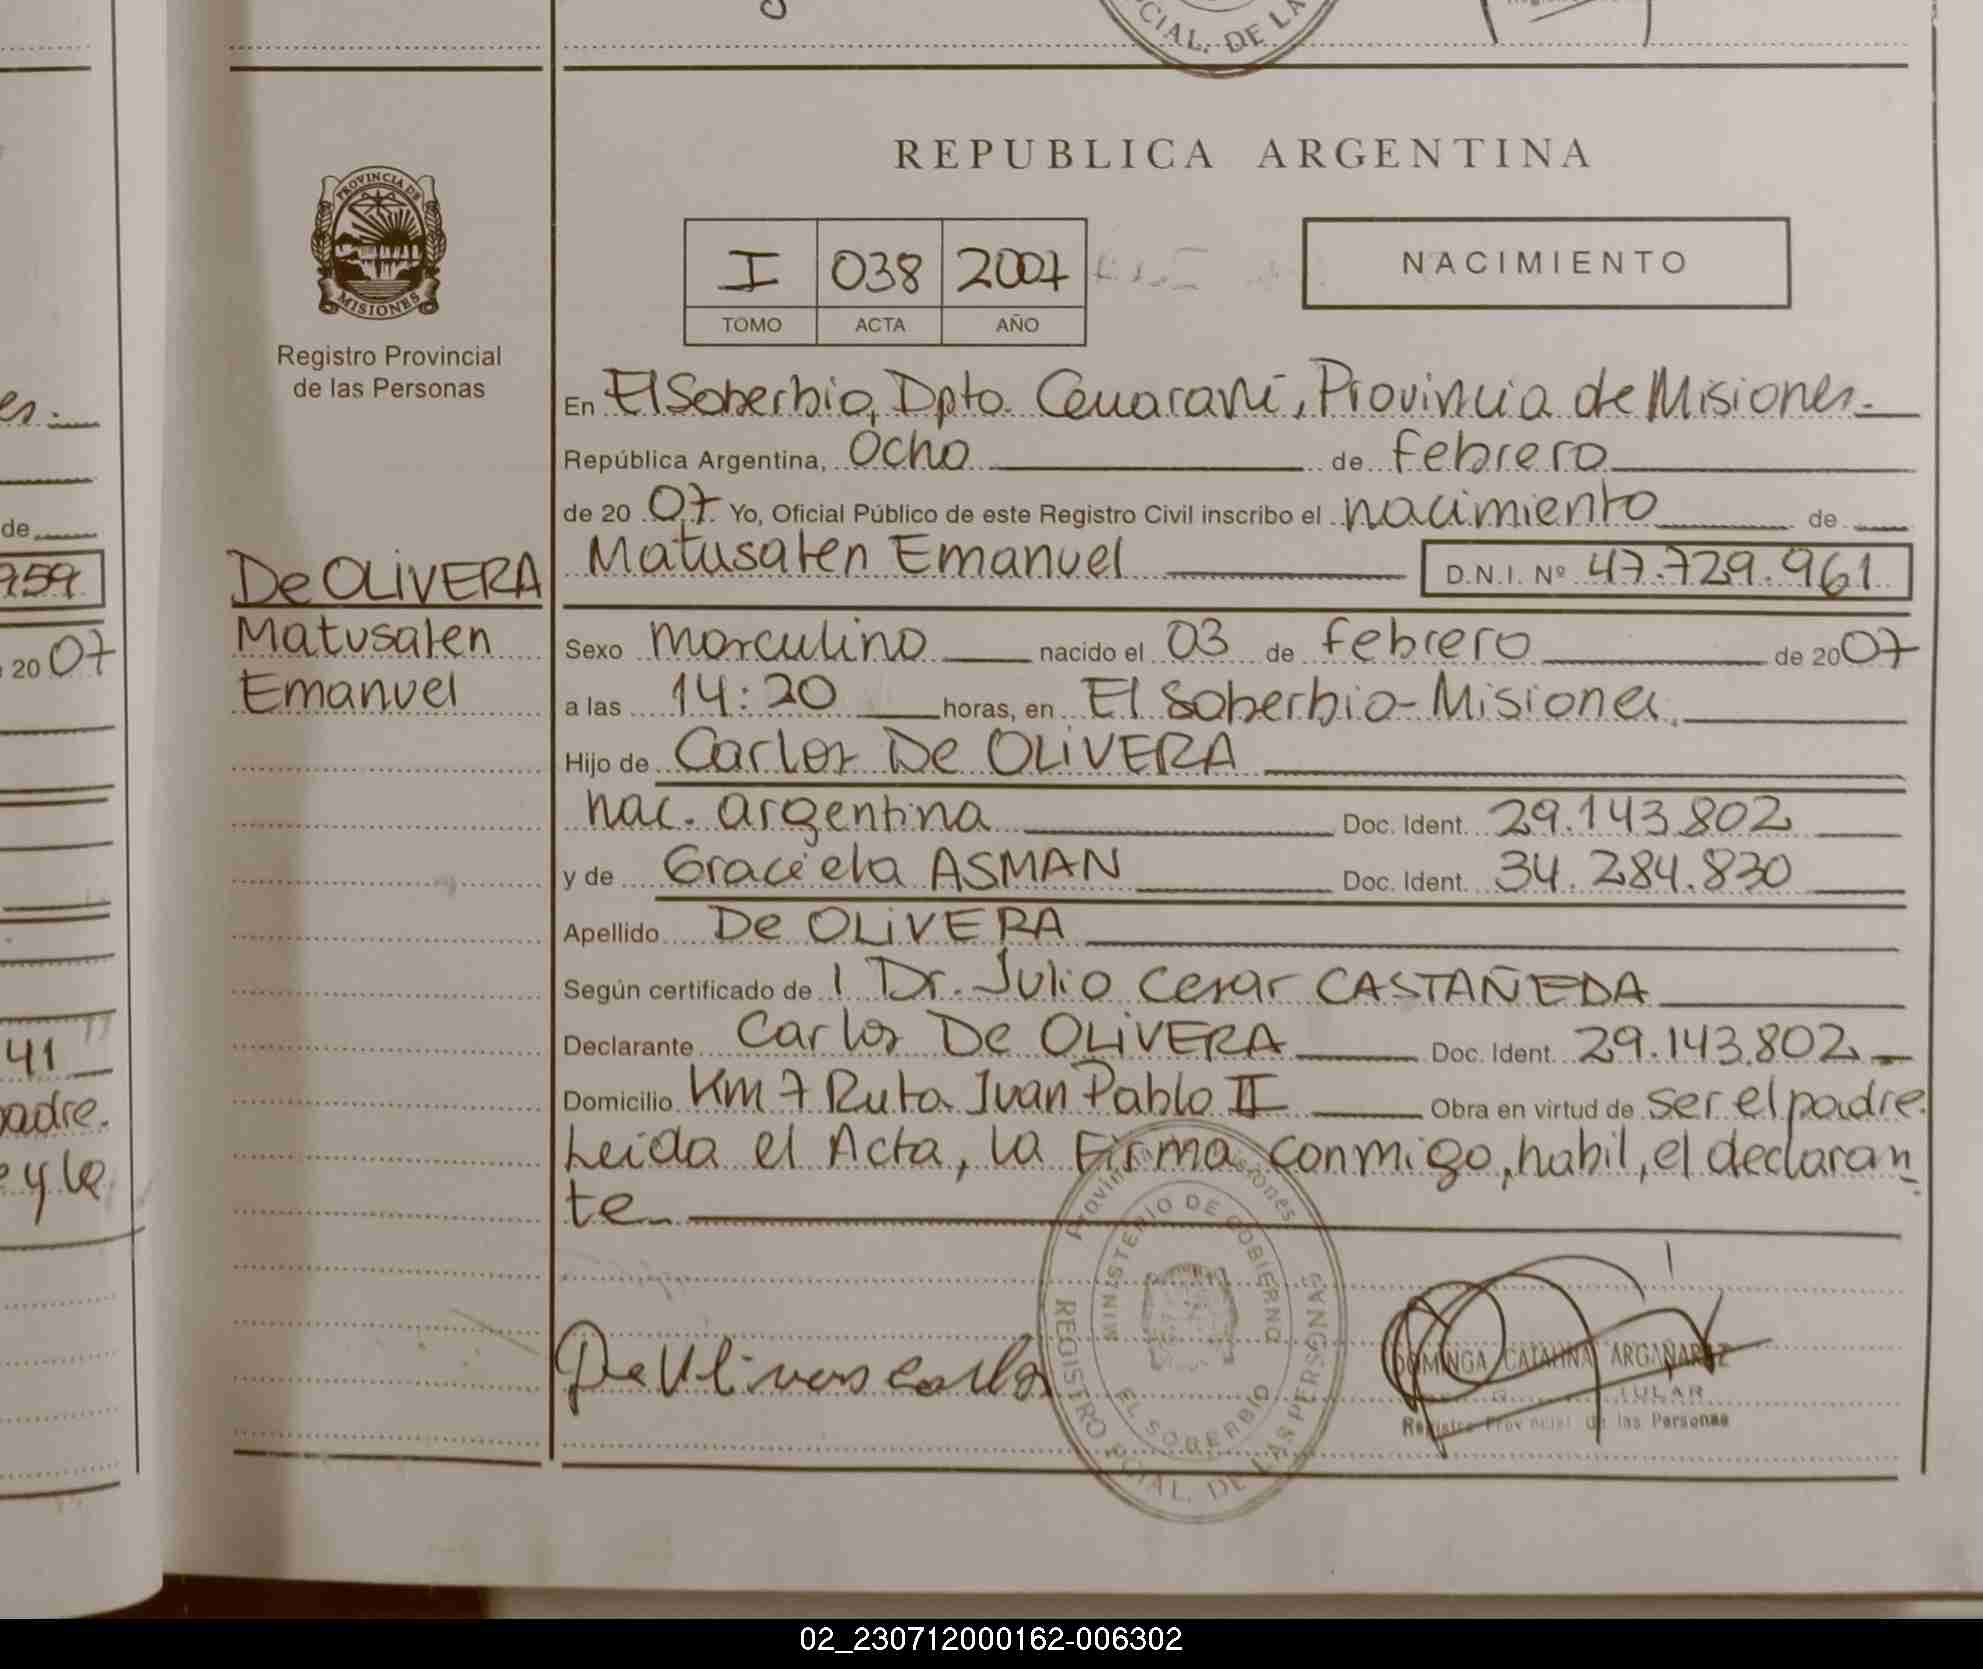 CIAL. DE LA
REPUBLICA ARGENTINA
PROVINCIA DE
MISIONES
Registro Provincial
de las Personas
I 038 2007
TOMO ACTA AÑO
NACIMIENTO
En El Soberbio, Dpto. Guaraní, Provincia de Misiones.
República Argentina, Ocho de febrero
de 20 07 Yo, Oficial Público de este Registro Civil inscribo el nacimiento de
De OLiVERA Matusalen Emanuel D.N.I. Nº 47.729.961
Matusalen
Emanuel
Sexo masculino nacido el 03 de febrero de 20 07
a las 14:20 horas, en El Soberbio-Misiones.
Hijo de Carlos De OLiVERA
nac. argentina Doc. Ident. 29.143.802
y de Graciela ASMAN Doc. Ident. 34.284.830
Apellido De OLiVERA
Según certificado de l Dr. Julio Cesar CASTAÑEDA
Declarante Carlos De OLiVERA Doc. Ident. 29.143.802
Domicilio Km 7 Ruta Juan Pablo II Obra en virtud de ser el padre.
Leida el Acta, la Firma conmigo, habil, el declaran
te
Provincia de Misiones
MINISTERIO DE GOBIERNO
EL SOBERBIO
REGISTRO PCIAL. DE LAS PERSONAS
De Olivera Carlos
DOMINGA CATALINA ARGAÑARAZ
Registro Provincial de las Personas
es.
de
959
20 07
41
padre.
e y la
02_230712000162-006302